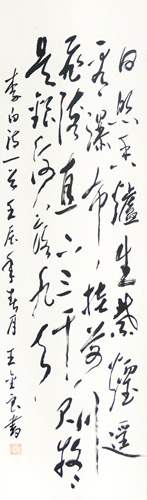 日照香爐生紫煙遥
看瀑布掛前川
飛流直下三千尺疑
是銀河落九天
李白诗一首壬辰年春月王金書